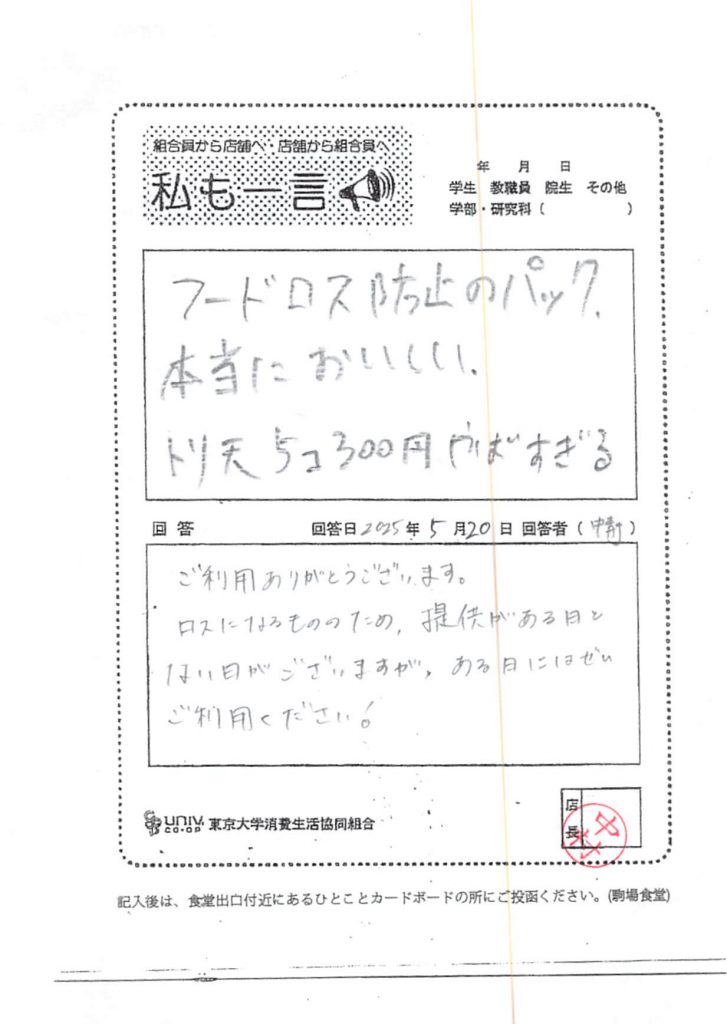 組合員から店舗へ・店舗から組合員へ
私も一言
年 月 日
学生 教職員 院生 その他
学部・研究科 ( )
フードロス防止のパック、
本当においしい、
トリ天5コ300円やばすぎる
回答 回答日2025年5月20日 回答者 ( )
ご利用ありがとうございます。
ロスになるもののため、提供がある日と
ない日がございますが、ある日にはぜひ
ご利用ください!
UNIV. CO-OP 東京大学消費生活協同組合
店長
中村
記入後は、食堂出口付近にあるひとことカードボードの所にご投函ください。(駒場食堂)